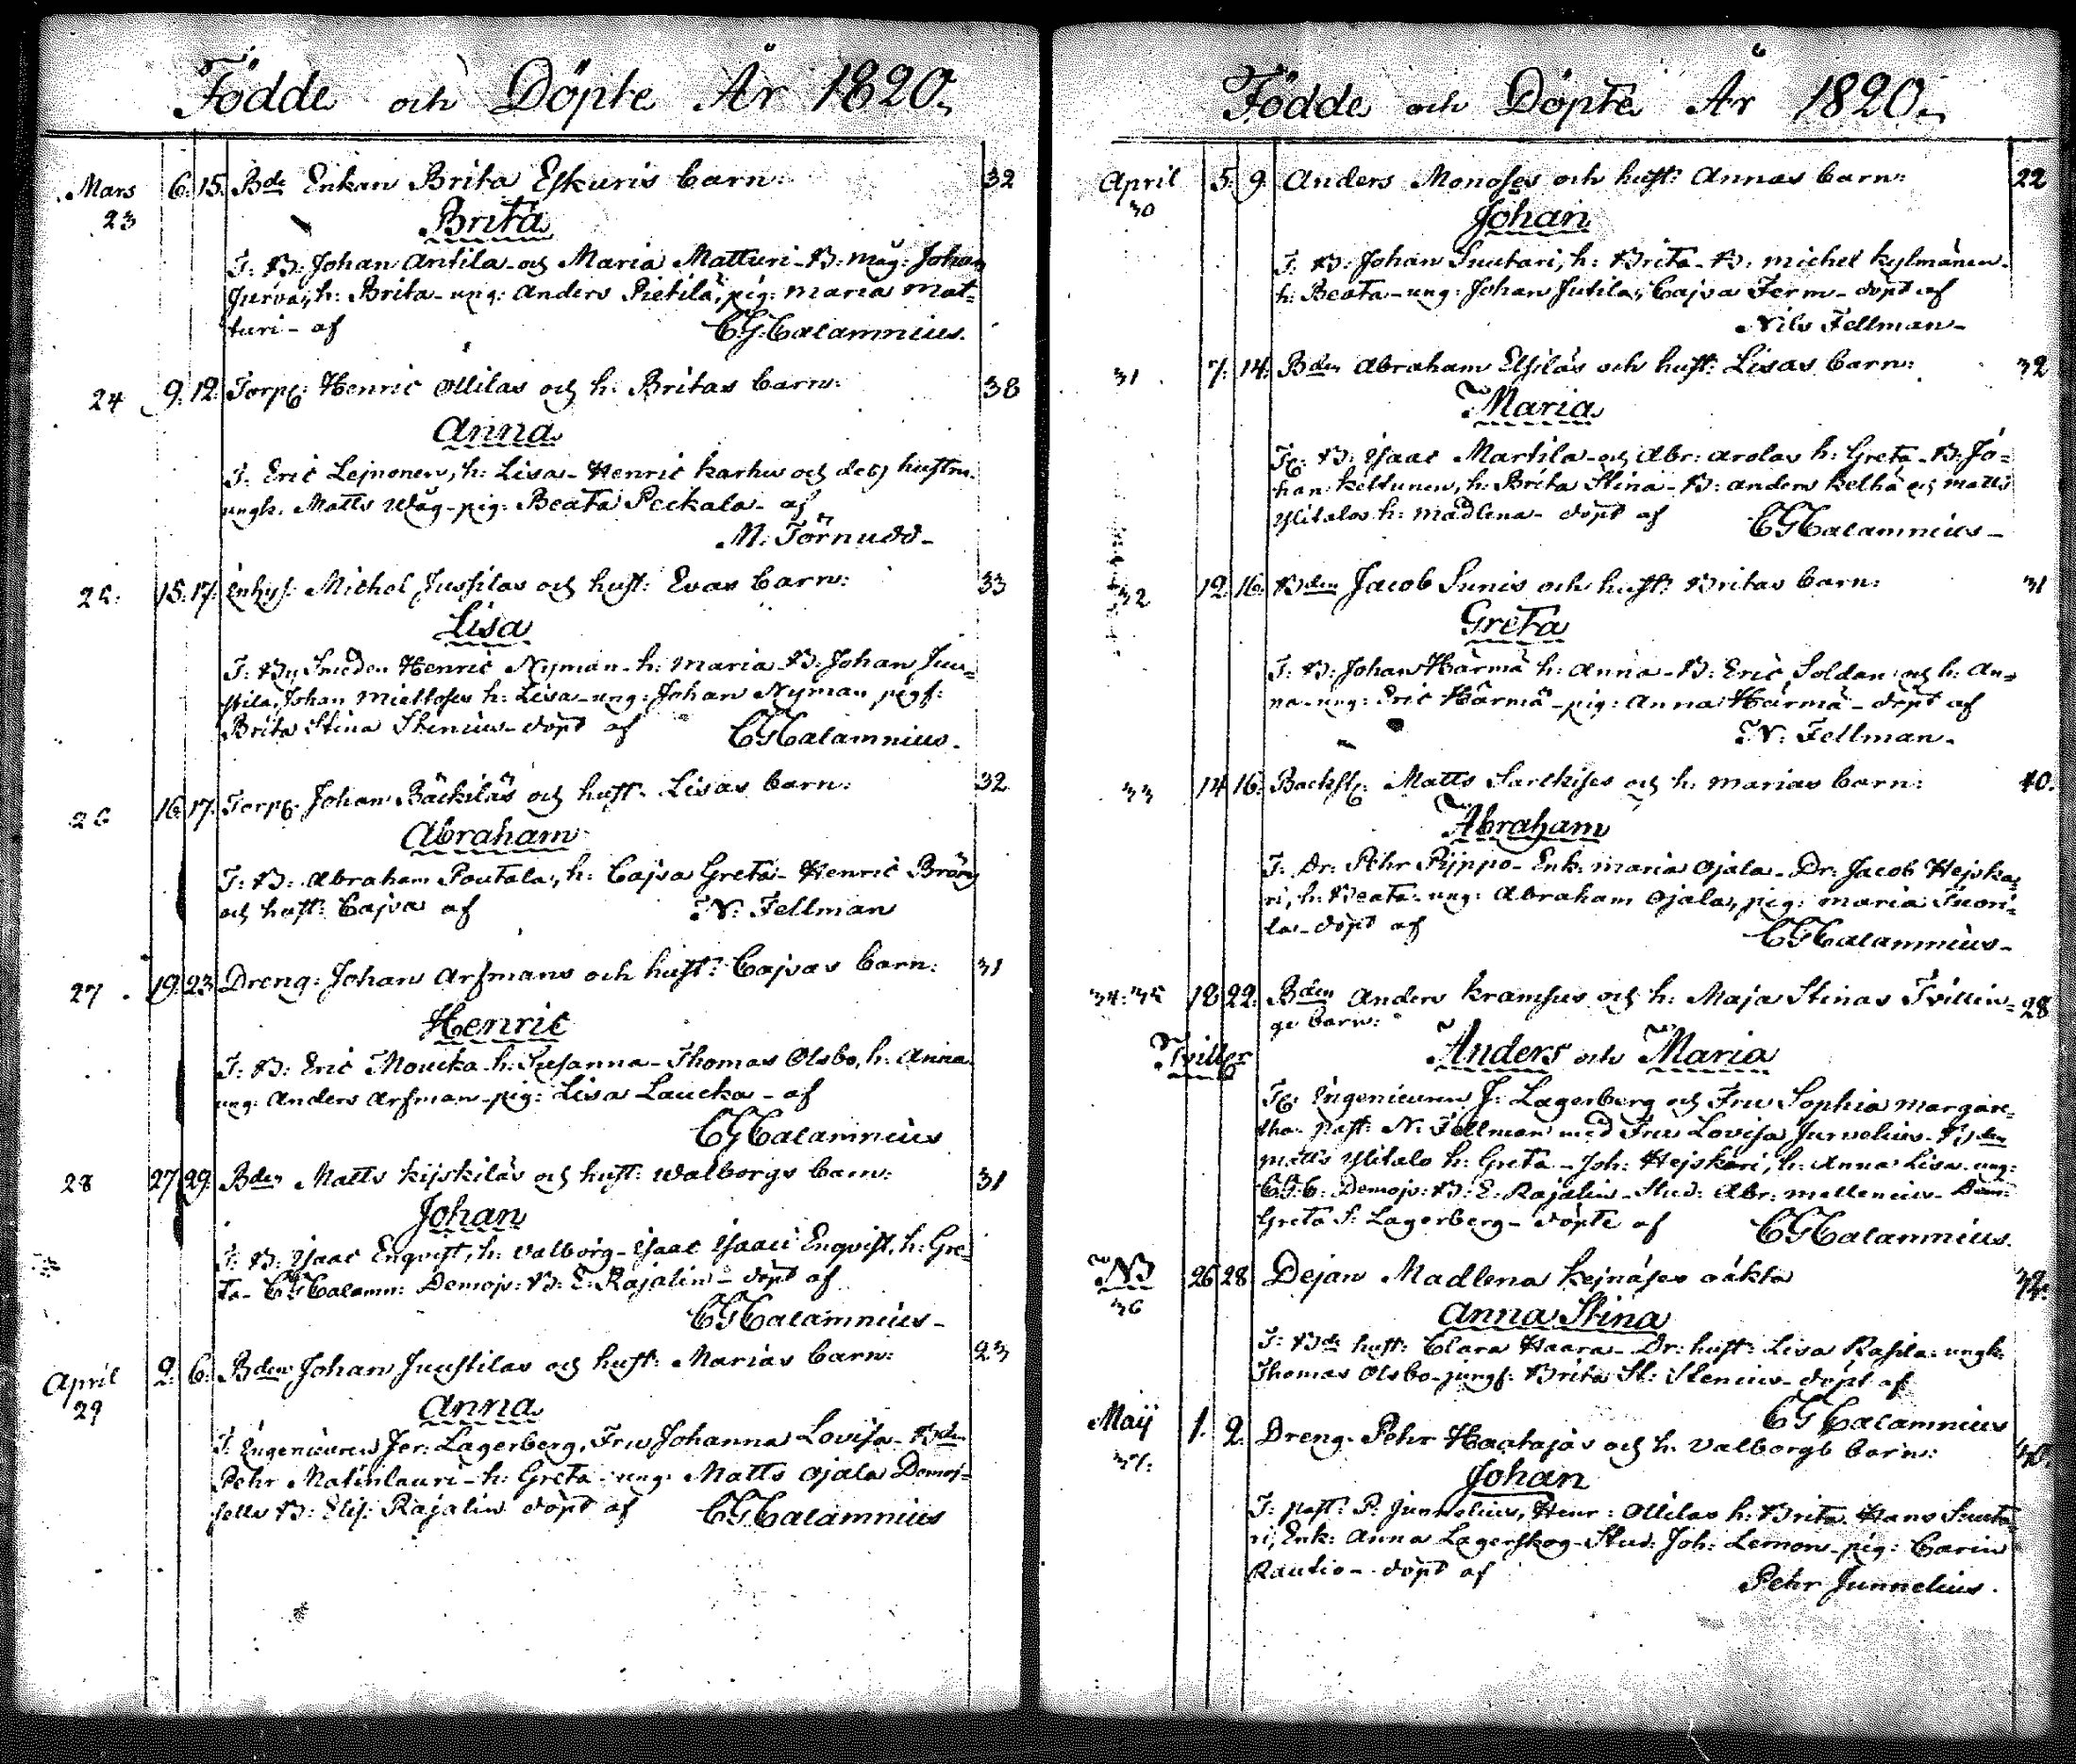 Födde och Döpte År 1820.
Mars 6. 15. Bde Enkan Brita Eskuris barn: 32
23
Brita
T: B: Johan Antila och Maria Matturi - B: måg: Johan
Jurva, h: Brita - ung: Anders Pietilä, pig: Maria Mat=
turi - af C.G. Calamnius.
24 9. 12. Torp: Henric Ollilas och h: Britas barn: 38
Anna
T. Eric Lejnonen, h: Lisa - Henric Karhu och dess hustru
ungk. Matts Wäg - pig: Beata Peckala - af
M. Törnudd -
25. 15. 17. Inhys: Michel Jussilas och hust: Evas barn: 33
Lisa
T: By Smeden Henric Nyman - h: Maria - B: Johan Juu=
stila, Johan h: Lisa - ung: Johan Nyman pigf:
Brita Stina Stenius - döpt af CGCalamnius.
26 16. 17. Torp: Johan Bäckiläs och hust: Lisas barn: 32
Abraham
T: B: Abraham Poutala, h: Cajsa Greta - Henric
och hust: Cajsa af N: Fellman
27 19. 23 Dreng: Johan Arfmans och hust: Cajsas barn: 31
Henric
T: B: Eric Moucka h: Susanna - Thomas Olsbo, h: Anna
ung: Anders Arfman - pig: Lisa Laucka - af
CGCalamnius
28 27 29. Bden Matts Kijskiläs och hust: Walborgs barn: 31
Johan
T: B: Isaac Enqvist, h: Valborg - Isaac Isaaci Enqvist, h: Gre=
ta - CGCalamn: Demois: B: E: Rajalin - döpt af
CGCalamnius -
April 2. 6. Bden Johan Juustilas och hust: Marias barn: 23
29
Anna
T: Engenieuren Jer: Lagerberg, Fru Johanna Lovisa - Bden
Pehr Matinlauri - h: Greta - ung: Matts Ojala Demoi=
selle B: Elis: Rajalin döpt af CGCalamnius
Födde och Döpte År 1820.
April 5. 9. Anders Monoses och hust: Annas barn: 22
30
Johan
T: B: Johan Suutari, h: Brita - B: Michel Kylmänen -
h: Beata - ung: Johan Jutila, Cajsa Ferm - döpt af
Nils Fellman -
31 7. 14. Bden Abraham Elsiläs och hust: Lisas barn: 32
Maria
T: B: Isaac Martila och Abr: Arolas h: Greta - B: Jo=
han Keltunen, h: Brita Stina - B: Anders Kelhä och Matts
Ylitalos h: Madlena - döpt af CGCalamnius -
32 12. 16. Bden Jacob Sunis och hust: Britas barn: 31
Greta
T: B: Johan Härmä h: Anna - B: Eric Soldan och h: An=
na - ung: Eric Härmä - pig: Anna Härmä - döpt af
N: Fellman -
33 14 16. Backst: Matts Sarckises och h: Marias barn: 40.
Abraham
T: Dr: Pehr Pijppo - Enk: Maria Ojala - Dr: Jacob Hejska=
ri, h: Beata - ung: Abraham Ojala, pig: Maria Tuori=
la - döpt af CGCalamnius -
34: 35 18 22. Bden Anders Kramsus och h: Maja Stinas Tvillin= 28
ge barn:
Tvillgr Anders och Maria
T: Engenieuren J: Lagerberg och Fru Sophia Margare=
tha - past: N: Fellman med Fru Lovisa Junnelius - Bden
Matts Ylitalo h: Greta - Joh: Hejskari, h: Anna Lisa - ung:
CGC: Demois: B: E: Rajalin - Stud: Abr: Mellenius - Dem:
Greta S: Lagerberg - döpte af CGCalamnius.
NB 26 28 Dejan Madlena Kejnäses oäkta 32.
36
Anna Stina
T: Bds hust: Clara Haara - Dr: hust: Lisa Rasila - ungk:
Thomas Olsbo - jungf: Brita St: Stenius - döpt af
CG Calamnius
Maij 1. 2. Dreng: Pehr Haatajas och h: Valborgs barn: 40.
37.
Johan
T: past: P: Junnelius, Henr: Ollilas h: Brita - Hans Suuta=
ri, Enk: Anna Lagerskog - Stud: Joh: Lemon - pig: Carin
Rautio - döpt af Pehr Junnelius.